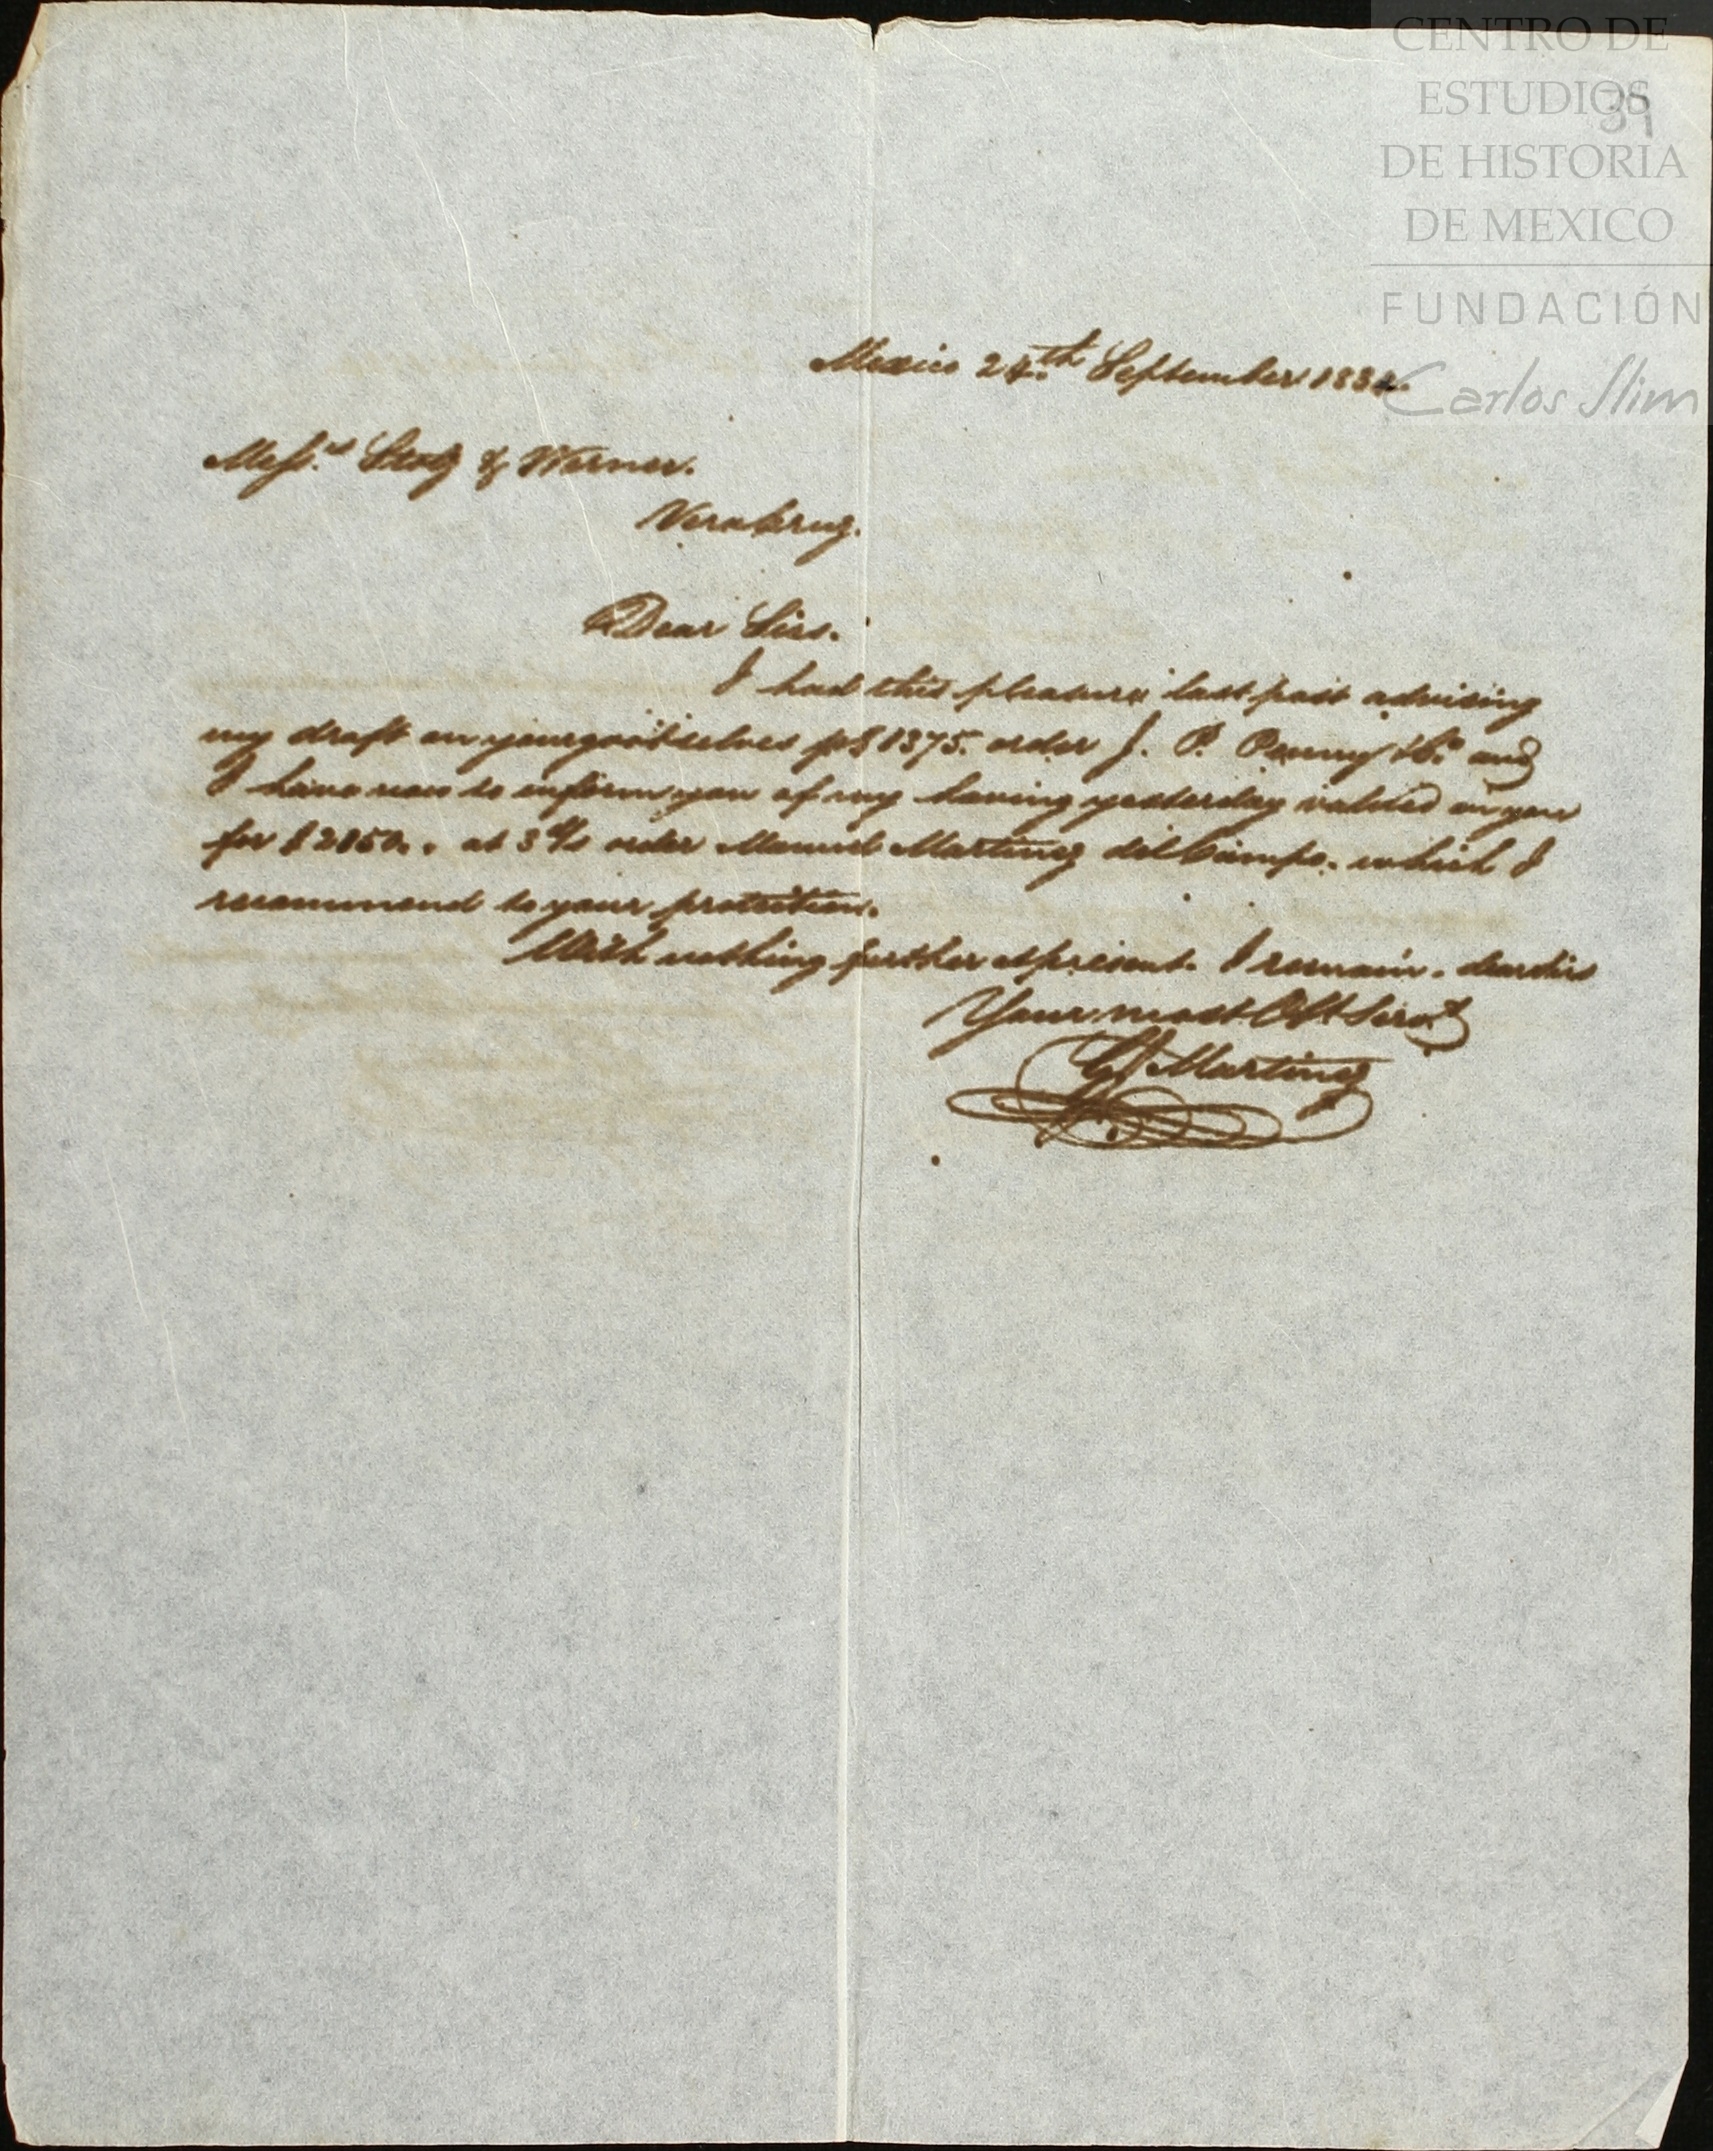 CENTRO DE
ESTUDIOS
DE HISTORIA
DE MEXICO
FUNDACIÓN
Carlos Slim
39
Mexico 24th September 183
Messrs Stolz & Werner.
Veracruz.
Dear Sirs.
I had this pleasure last post advising
my draft on your goodselves p $1375. order J. P. Penny & Co and
I have now to inform you of my having yesterday valued on you
for $2150.. at 3 d/s order Manuel Martinez del Campo. which I
recommend to your protection.
With nothing further at present. I remain. dear sirs
Your most Obt Servt
Martinez